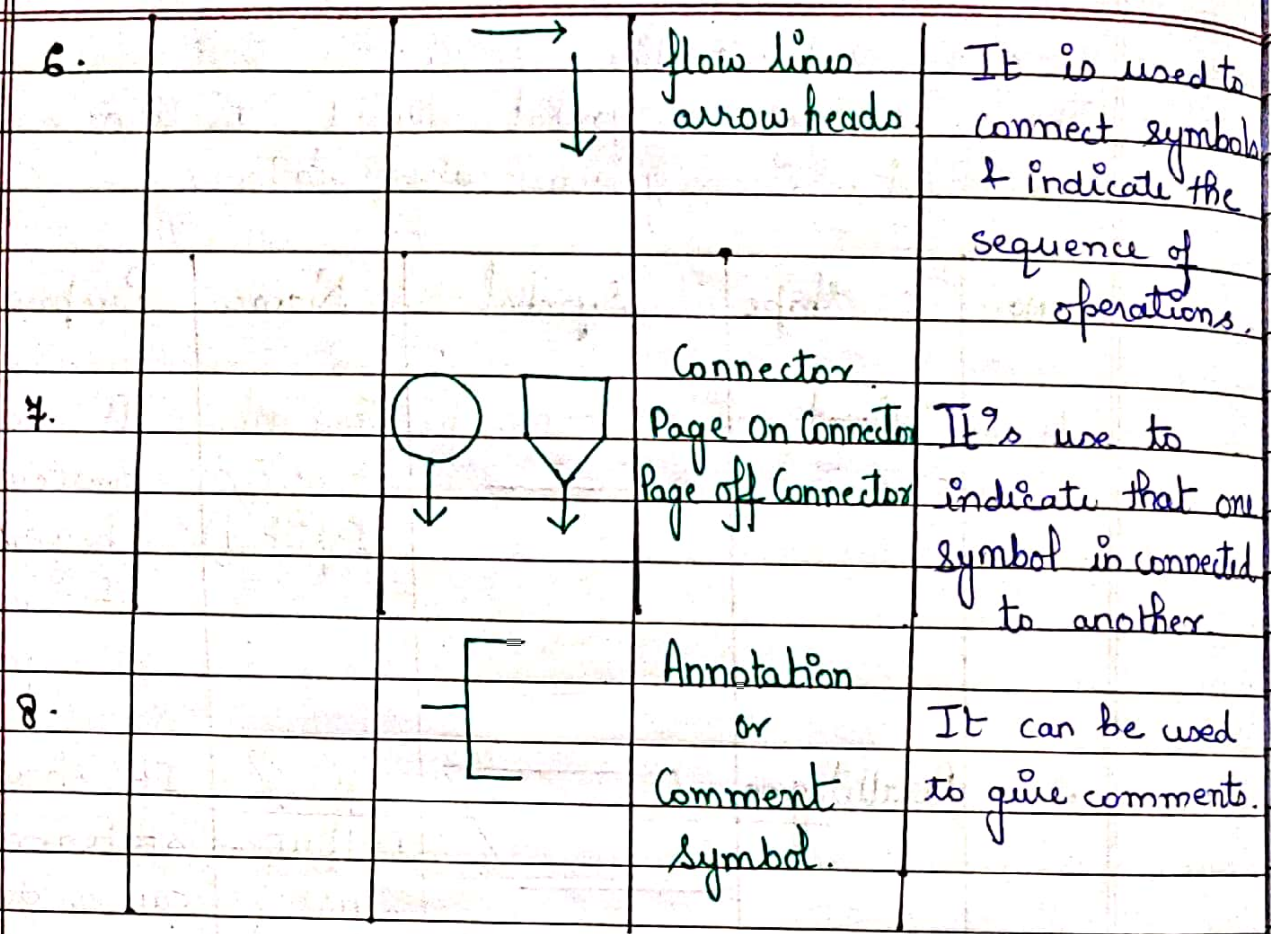 6.
flow lines
arrow heads.
It is used to
connect symbols
& indicate the
sequence of
operations.
7.
Connector.
Page on Connector
Page off Connector
It's use to
indicate that one
symbol in connected
to another
8.
Annotation
or
Comment
symbol.
It can be used
to give comments.